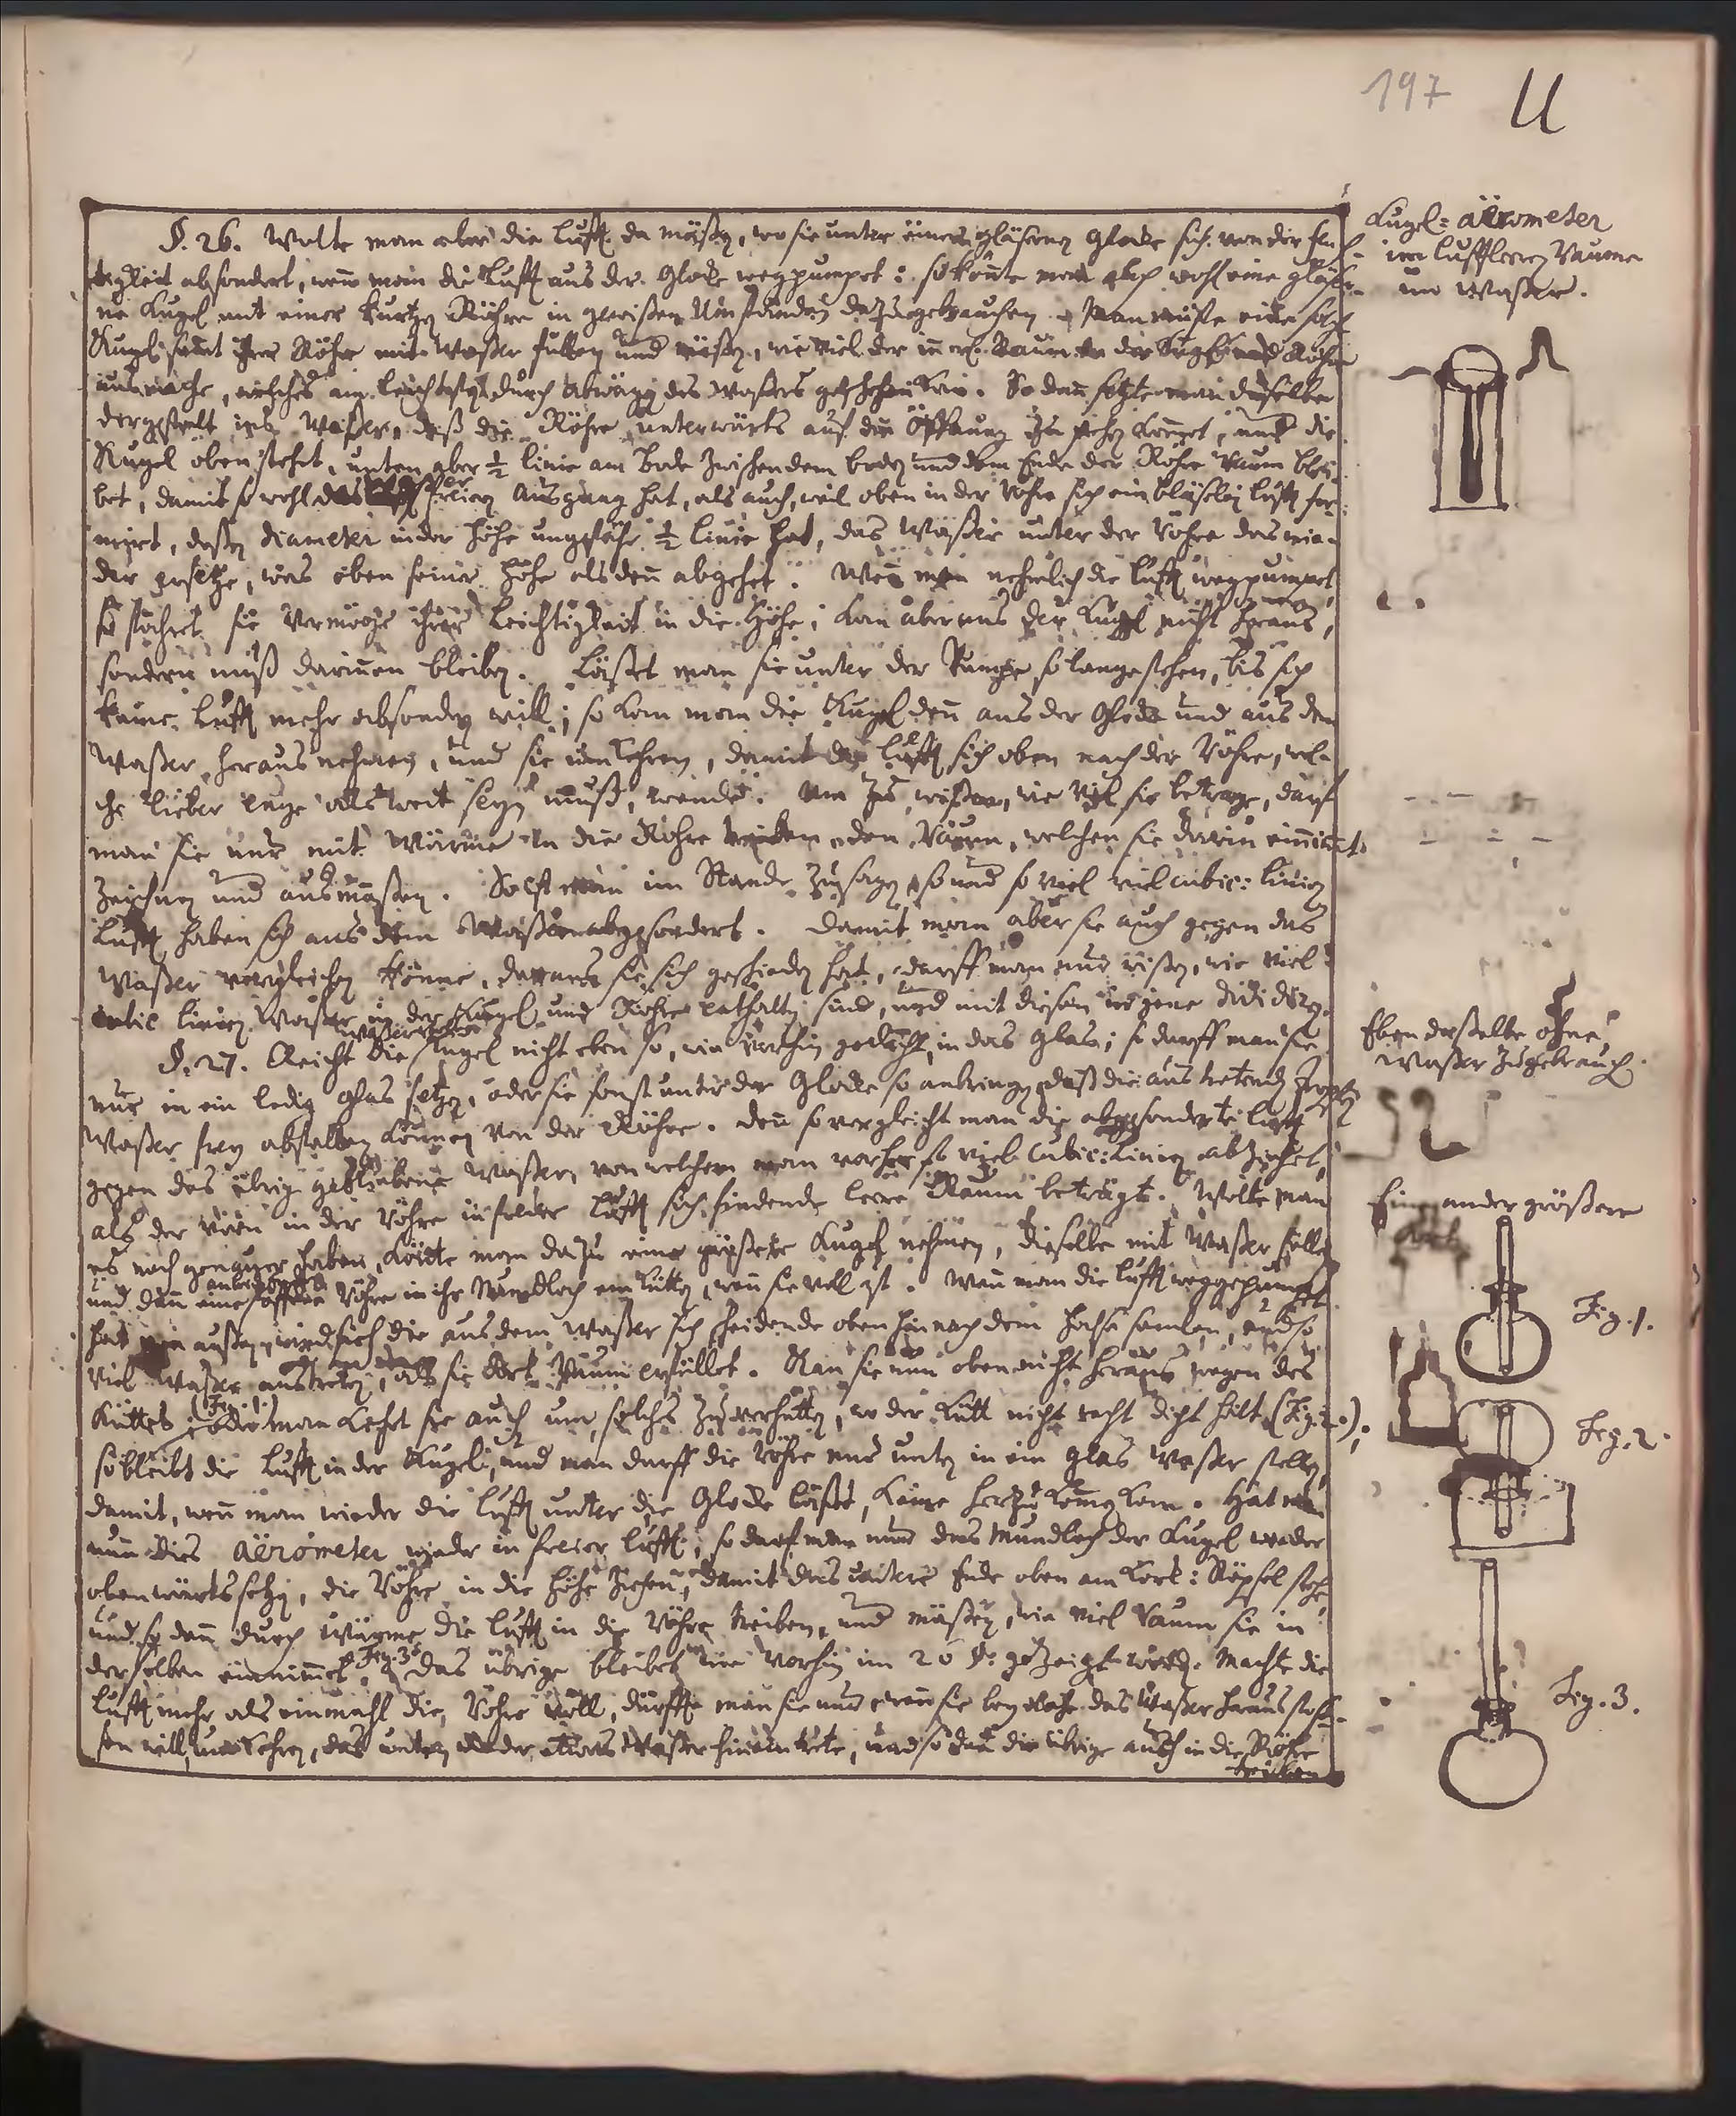 197 U
§. 26. Wolte man aber die Luft da mäßen, wo sie unter einer gläsernen Glocke sich von der
absondert, wenn man die Luft aus der Glocke wegpumpet: so könte man auch wohl eine gläser-
ne Kugel mit einer kurtzen Röhre in gewißen Umständen dazu gebrauchen. Man müste eine solche
Kugel samt ihrer Röhre mit Waßer füllen und wißen, wie viel der Raum der Kugel und Röhre
ausmache, welches am leichtesten durch Abwägen des Waßers geschehen kan. So dann setzte man dieselbe
dergestalt ins Waßer, daß die Röhre unterwärts auf die Öffnung zu stehen kommet, und die
Kugel oben stehet, unten aber ½ Linie am Bode zwischen dem Boden und dem Ende der Röhre Raum blei-
bet, damit so wohl das freien Ausgang hat, als auch, weil oben in der Röhre sich ein bläslein Luft for-
mirt, deßen diameter in der Höhe ungefähr ½ Linie hat, das Waßer unter der Röhre das wie-
der ersetze, was oben seiner Höhe alsdenn abgehet. Wenn man nehmlich die Luft wegpumpet,
so fähret sie vermöge ihrer Leichtigkeit in die Höhe; kan aber aus der Kugel nicht heraus,
sondern muß darinnen bleiben. Läßet man sie unter der Pumpe so lange stehen, bis sich
keine Luft mehr absondern will; so kan man die Kugel denn aus der Glocke und aus dem
Waßer heraus nehmen, und sie umkehren, damit die Luft sich oben nach der Röhre, wel-
che lieber enge als weit seyn muß, wende. Um zu wißen, wie viel sie betrage, darf
man sie nur mit Wärme in die Röhre treiben, den Raum, welchen sie darin einnimt.
zeichnen und ausmäßen. So ist man im Stande zu sagen, so und so viel viel cubic: Linien
Luft haben sich aus dem Waßer abgesondert. Damit man aber sie auch gegen das
Waßer vergleichen könne, daraus sie sich geschieden hat, darff man nur wißen, wie viel
cubic Linien Waßer in der Kugel und Röhre enthalten sind, und mit diesen in jene dividiren.
§. 27. Reicht die Kugel nicht eben so, wie vorhin gedacht, in das Glas; so darff man sie
nur in ein ledig Glas setzen, oder sie sonst unter der Glocke so anbringen, daß die austretenden Tropfen
Waßer frey abfallen können von der Röhre. Denn so vergleicht man die abgesonderte Luft
gegen das übrig gebliebene Waßer, von welchem man vorher so viel cubic: Linien abziehet,
als der in der Röhre Luft sich findende leere Raum beträgt. Wolte man
es noch genauer haben, könte man dazu eine größere Kugel nehmen, dieselbe mit Waßer füllen
und dann eine Röhre in ihr Mundloch ein kütten, wenn sie voll ist. Wann man die Luft weggepumpet
hat von außen, wird sich die aus dem Waßer sich scheidende oben hin nach dem Halse samlen, und so
viel Waßer austreten, als sie dort Raum erfüllet. Kan sie nun oben nicht heraus wegen des
Küttes (Fig. 1.) oder man kehret sie auch um, solches zu verhütten, wo der Kütt nicht recht dicht hält (Fig. 2.);
so bleibt die Luft in der Kugel, und man darff die Röhre nur unten in ein Glas Waßer stellen,
damit, wenn man wieder die Luft unter die Glocke läßet, keine herzu komen kan. Hat man
nun dies aërometer wieder in freier Luft; so darf man nur das Mundloch der Kugel wieder
obenwärts setzen, die Röhre in die Höhe ziehen, damit das untere Ende oben am Kork: Stöpsel stehe
und so dann durch Wärme die Luft in die Röhre treiben, und mäßen, wie viel Raum sie in
derselben einnimmet. Fig. 3. Das übrige bleibet wie vorhin im 26 §. gezeigt worden. Machte die
Luft mehr als einmahl die Röhre voll, dürffte man sie nur wenn sie bey nahe das Waßer heraus stoß-
sen will, umkehren, das unten wieder etwas Waßer hinein trete, und so dann die übrige auch in die Röhre
treiben
Kugel: aërometer
im luftleeren Raume
im Waßer.
Eben daßelbe ohne
Waßer zu gebrauchen.
Eine andere größere
Fig. 1.
Fig. 2.
Fig. 3.